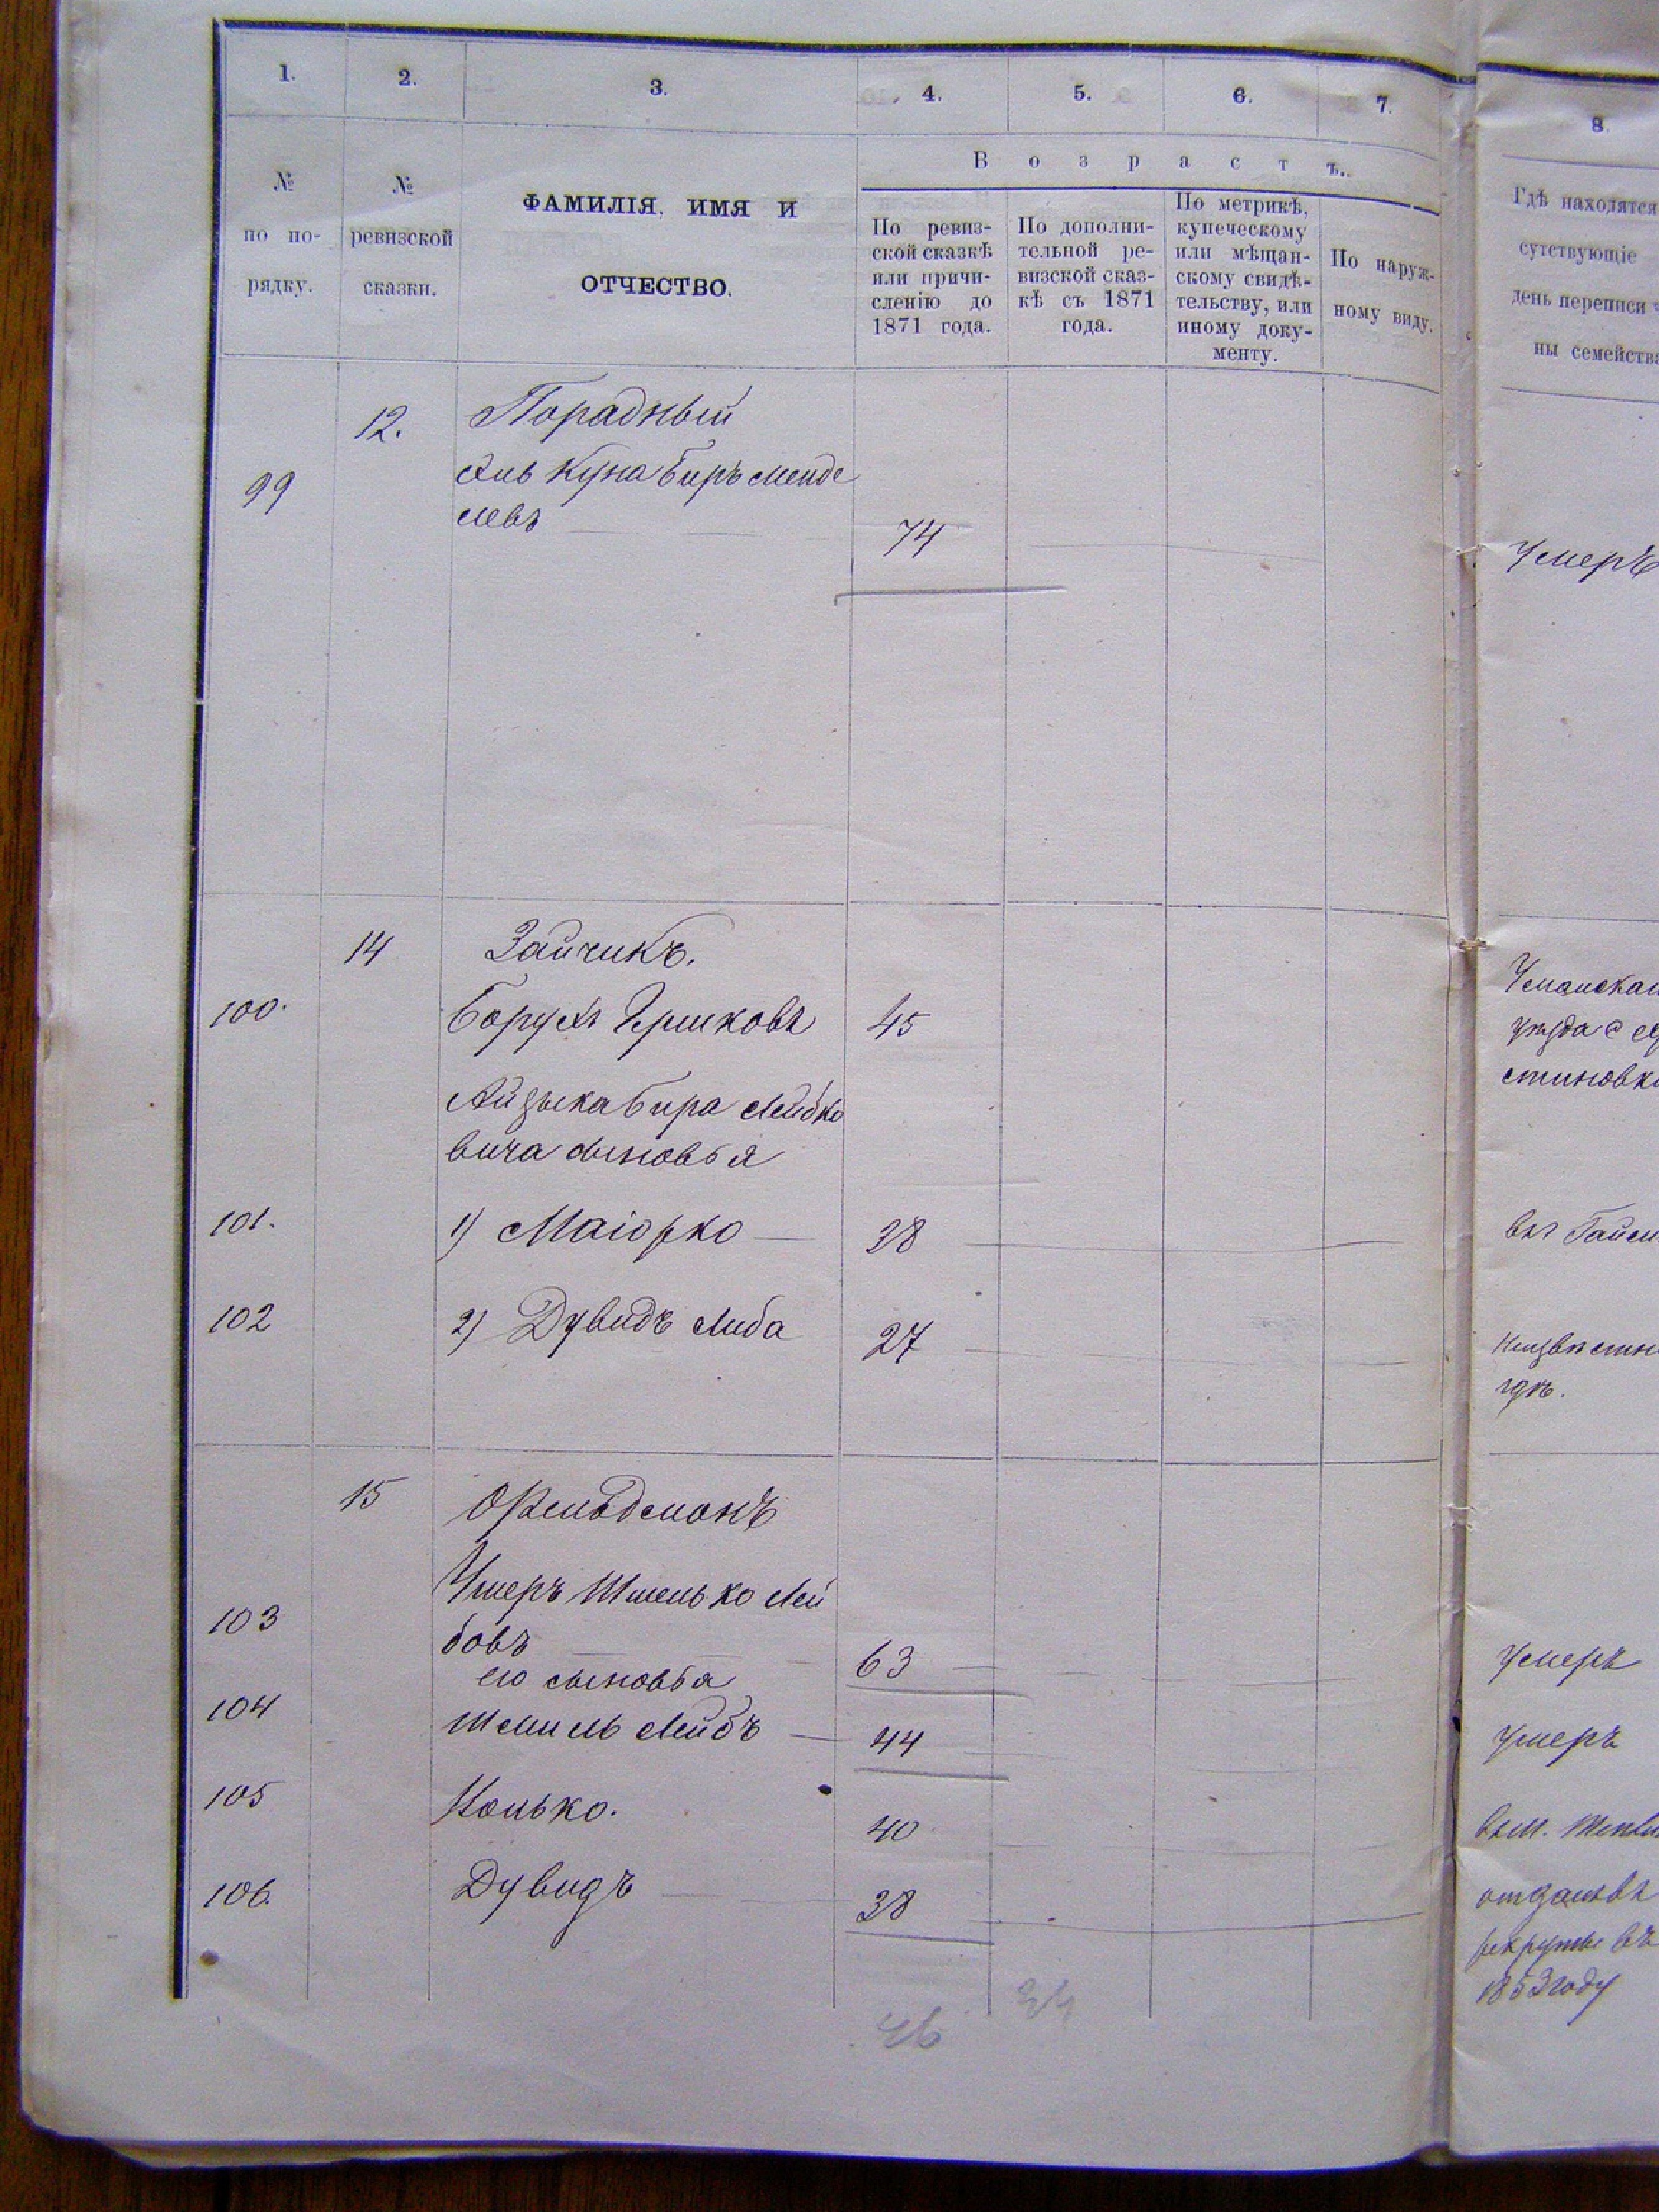 1. 2. 3. 4. 5. 6. 7. 8.
В о з р а с т ъ.
№ по по-рядку.
№ ревизской сказки.
ФАМИЛІЯ, ИМЯ И
ОТЧЕСТВО.
По ревиз-
ской сказкѣ
или причи-
сленію до
1871 года.
По дополни-
тельной ре-
визской сказ-
кѣ съ 1871
года.
По метрикѣ,
купеческому
или мѣщан-
скому свидѣ-
тельству, или
иному доку-
менту.
По наруж-
ному виду.
Гдѣ находятся
сутствующіе
день переписи
ны семейства
12. Порадный
99 Куна Беръ Менде
левъ 74 Умеръ
14 Зайчикъ.
100. Борухъ Гершковъ 45 Уманскаго
уѣзда с
стиновк
Айзыка Бера Лейбко
вича сыновья
101. 1) Маіорко 38 въ Гайси
102 2) Дувидъ Либа 27 Неизвѣстно
гдѣ.
15 Фельдманъ
Умеръ Шмелько Лей
103 бовъ 63 Умеръ
его сыновья
104 Шмиль Лейбъ 44 умеръ
105 Нолько. 40 въ м.
106. Дувидъ 38 отданъ въ
рекруты въ
1853 году
46 34